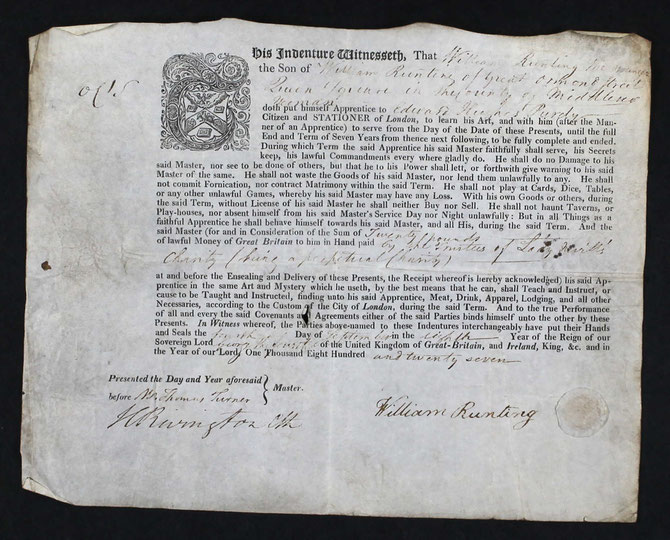 This Indenture Witnesseth, That William Runting the younger
the Son of William Runting of Great Ormond Street
Queen Square in the County of Middlesex
doth put himself Apprentice to Edward Purdy
Citizen and STATIONER of London, to learn his Art, and with him (after the Man-
ner of an Apprentice) to serve from the Day of the Date of these Presents, until the full
End and Term of Seven Years from thence next following, to be fully complete and ended.
During which Term the said Apprentice his said Master faithfully shall serve, his Secrets
keep, his lawful Commandments every where gladly do. He shall do no Damage to his
said Master, nor see to be done of others, but that he to his Power shall lett, or forthwith give warning to his said
Master of the same. He shall not waste the Goods of his said Master, nor lend them unlawfully to any. He shall
not commit Fornication, nor contract Matrimony within the said Term. He shall not play at Cards, Dice, Tables,
or any other unlawful Games, whereby his said Master may have any Loss. With his own Goods or others, during
the said Term, without License of his said Master he shall neither Buy nor Sell. He shall not haunt Taverns, or
Play-houses, nor absent himself from his said Master's Service Day nor Night unlawfully: But in all Things as a
faithful Apprentice he shall behave himself towards his said Master, and all His, during the said Term. And the
said Master (for and in Consideration of the Sum of Twenty Pounds
of lawful Money of Great Britain to him in Hand paid by the Trustees of Lady
Charity (being a perpetual Charity)
at and before the Ensealing and Delivery of these Presents, the Receipt whereof is hereby acknowledged) his said Ap-
prentice in the same Art and Mystery which he useth, by the best means that he can, shall Teach and Instruct, or
cause to be Taught and Instructed, finding unto his said Apprentice, Meat, Drink, Apparel, Lodging, and all other
Necessaries, according to the Custom of the City of London, during the said Term. And to the true Performance
of all and every the said Covenants and Agreements either of the said Parties binds himself unto the other by these
Presents. In Witness whereof, the Parties above-named to these Indentures interchangeably have put their Hands
and Seals the fourth Day of September in the eighth Year of the Reign of our
Sovereign Lord George the Fourth of the United Kingdom of Great-Britain, and Ireland, King, &c. and in
the Year of our Lord One Thousand Eight Hundred and twenty seven
Presented the Day and Year aforesaid
before Mr Thomas Turner Master.
Rivington Clk
William Runting